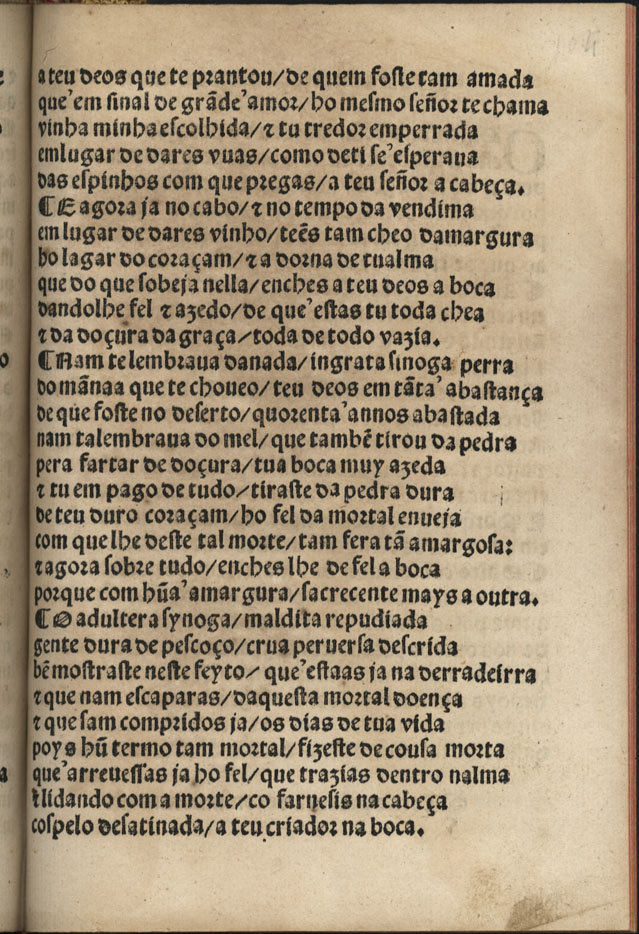 a teu deos que te prantou/de quem foste tam amada
que'em sinal de grãde'amor/ho mesmo señor te chama
vinha minha escolhida/⁊ tu tredor emperrada
em lugar de dares vuas/como de ti se'esperaua
das espinhos com que pregas/a teu señor a cabeça.
¶E agora ja no cabo/⁊ no tempo da vendima
em lugar de dares vinho/teẽs tam cheo damargura
ho lagar do coraçam/⁊ a dorna de tualma
que do que sobeja nella/enches a teu deos a boca
dandolhe fel ⁊ azedo/de que'estas tu toda chea
⁊ da doçura da graça/toda de todo vazia.
¶Nam te lembraua danada/ingrata sinoga perra
do mãnaa que te choueo/teu deos em tãta'abastança
de que foste no deserto/quorenta'annos abastada
nam talembraua do mel/que tambẽ tirou da pedra
pera fartar de doçura/tua boca muy azeda
⁊ tu em pago de tudo/tiraste da pedra dura
de teu duro coraçam/ho fel da mortal enueja
com que lhe deste tal morte/tam fera tã amargosa:
⁊ agora sobre tudo/enches lhe de fel a boca
porque com hũa'amargura/sacrecente mays a outra.
¶O adultera synoga/maldita repudiada
gente dura de pescoço/crua peruersa descrida
bẽ mostraste neste feyto/que'estaas ja na derradeirra
⁊ que nam escaparas/daquesta mortal doença
⁊ que sam compridos ja/os dias de tua vida
poys hũ termo tam mortal/fizeste de cousa morta
que'arreuessas ja ho fel/que trazias dentro nalma
⁊ lidando com a morte/co farnesis na cabeça
cospelo desatinada/a teu criador na boca.